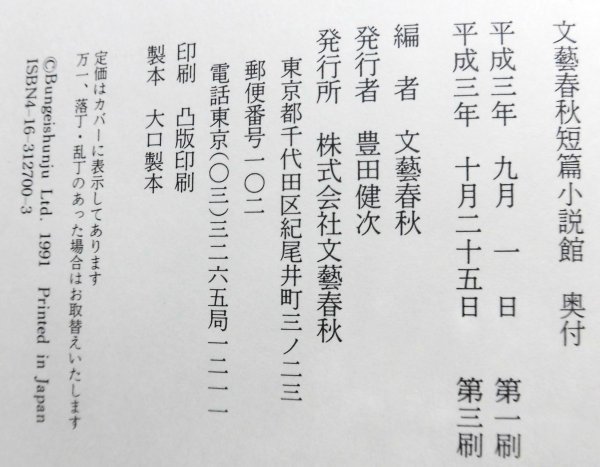 文藝春秋短篇小説館　奥付
平成三年　九月　一　日　第一刷
平成三年　十月二十五日　第三刷
編　者　文藝春秋
発行者　豊田健次
発行所　株式会社文藝春秋
東京都千代田区紀尾井町三ノ二三
郵便番号一〇二
電話東京(〇三)三二六五局一二一一
印刷　凸版印刷
製本　大口製本
定価はカバーに表示してあります
万一、落丁・乱丁のあった場合はお取替えいたします
©Bungeishunju Ltd. 1991 Printed in Japan
ISBN4-16-312700-3